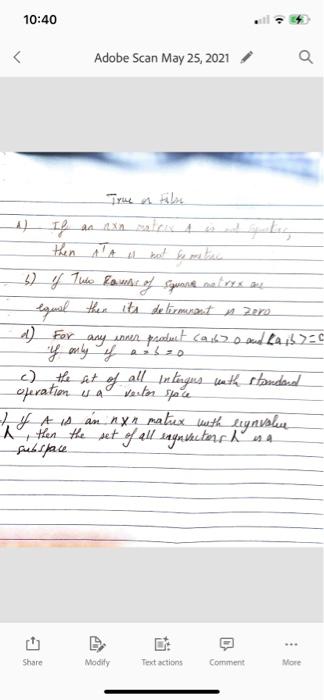 10:40
Adobe Scan May 25, 2021
True or False
A) If an nxn matrix A is not symetric,
then AᵀA is not symetric
b) if Two Rowws of square matryx are
equal then its determinant is zero
d) For any inner product <a,b> 0 and <a,b>=0
if only if a=b=0
c) the set of all Integers with standard
operation is a vector space
if A is an nxn matrix with eignvalue
λ, then the set of all eignvectors λ is a
subspace
Share Modify Text actions Comment More